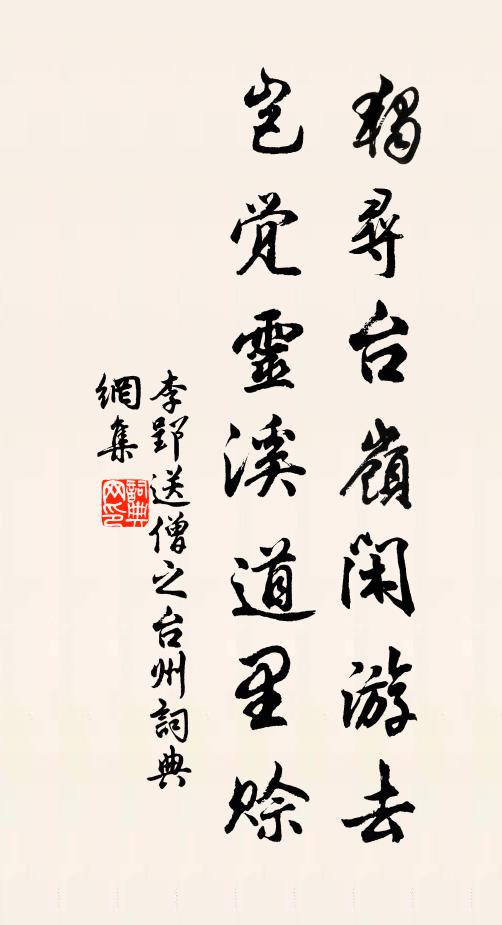 獨尋台嶺閑游去
豈覺靈溪道里賒
李郢送僧之台州詞典
網集
詞典網印